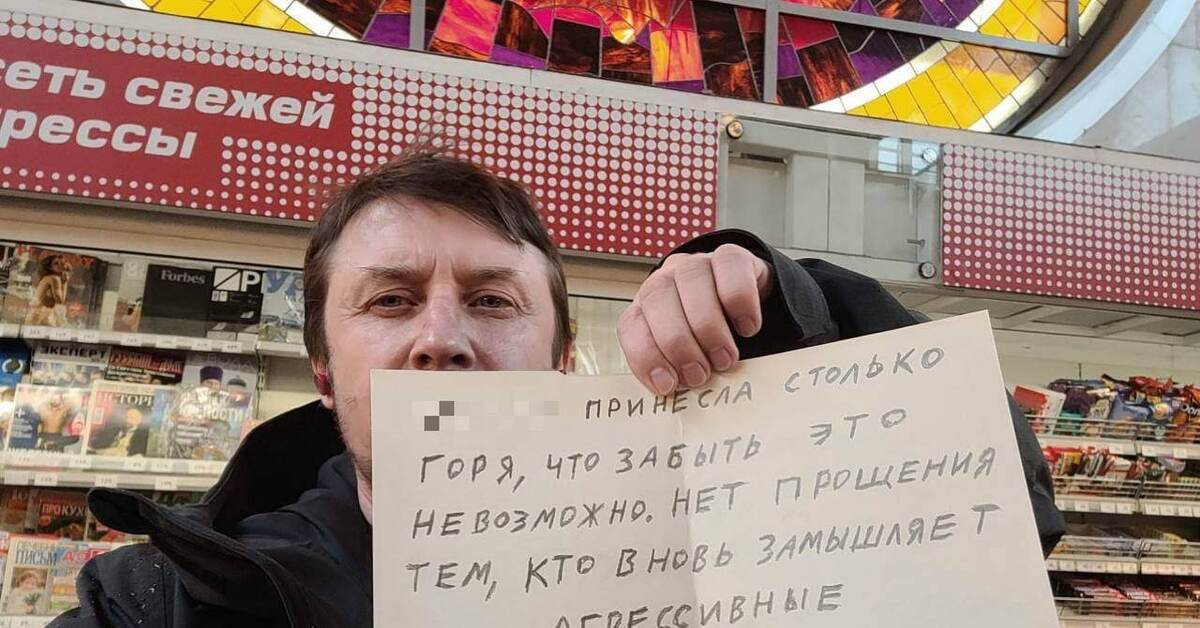 сеть свежей
прессы
Forbes
ЭКСПЕРТ
ПРИНЕСЛА СТОЛЬКО
ГОРЯ, ЧТО ЗАБЫТЬ ЭТО
НЕВОЗМОЖНО. НЕТ ПРОЩЕНИЯ
ТЕМ, КТО ВНОВЬ ЗАМЫШЛЯЕТ
АГРЕССИВНЫЕ